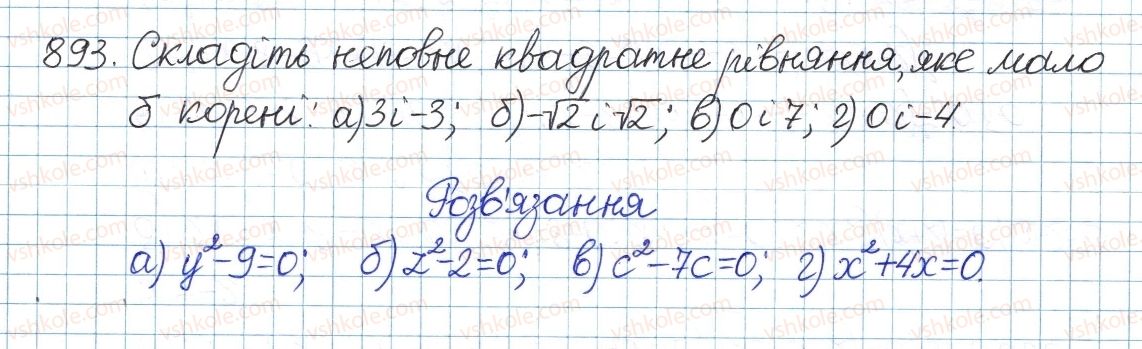 893. Складіть неповне квадратне рівняння, яке мало
б корені: а) 3 і -3; б) -√2 і √2; в) 0 і 7; г) 0 і -4.
Розв'язання
а) y²-9=0; б) z²-2=0; в) c²-7c=0; г) x²+4x=0.